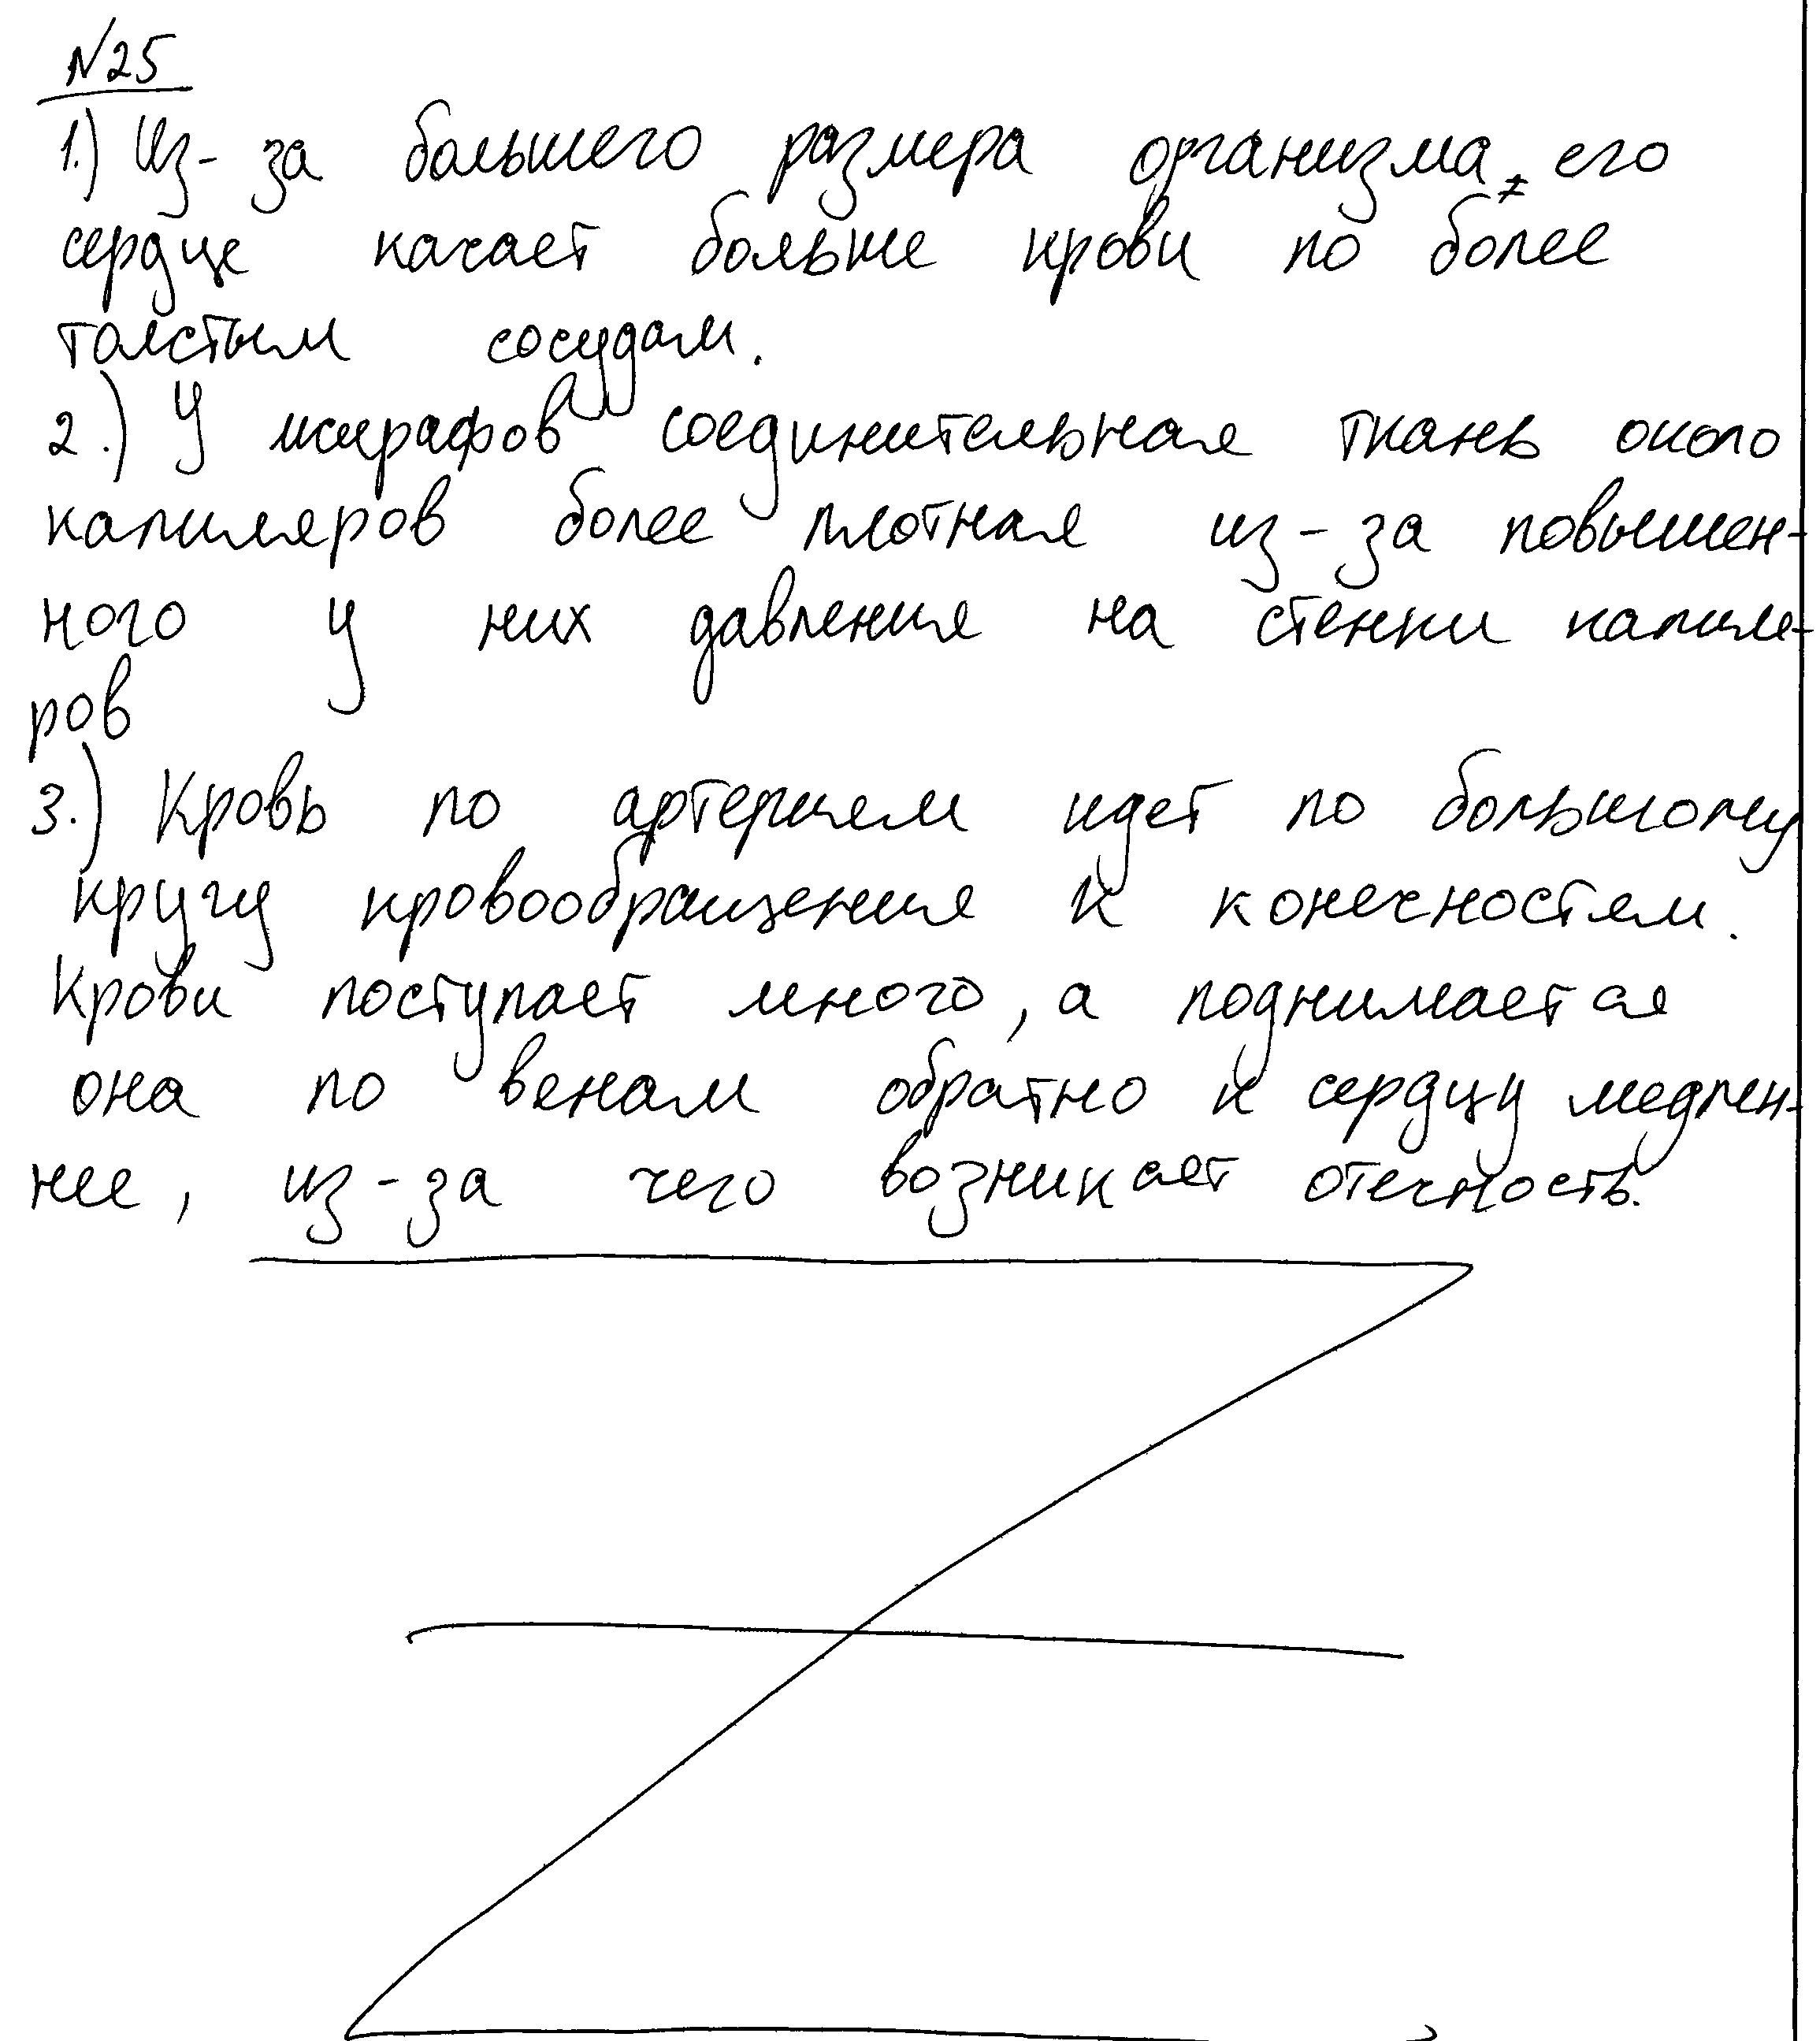 №25
1.) Из-за большего размера организма, его
сердце качает больше крови по более
толстым сосудам.
2.) У жирафов соединительная ткань около
капиляров более плотная из-за повышен-
ного у них давления на стенки капиля-
ров
3.) Кровь по артериям идет по большому
кругу кровообращения к конечностям.
Крови поступает много, а поднимается
она по венам обратно к сердцу медлен-
нее, из-за чего возникает отечность.